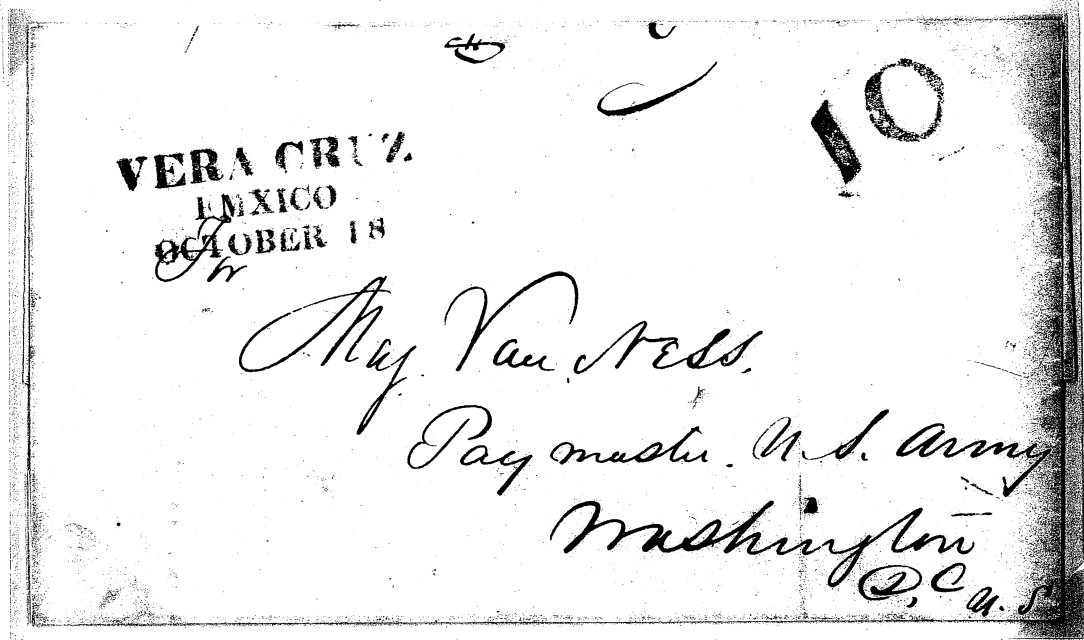 10
VERA CRUZ
EMXICO
OCTOBER 18
For
Maj. Van Ness.
Paymaster. U. S. Army
Washington
D, C
U. S